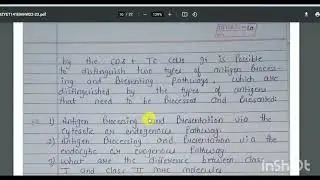 10 / 22
by the CD8+ Tc cells It is Possible
to distinguish two types of antigen Process-
ing and Presenting Pathways, which are
distinguished by the types of antigens
that need to be Processed and Presented:
1) Antigen Processing and Presentation via the
Cytosolic or endogenous Pathway.
2) Antigen Processing and Presentation via the
endocytic or exogenous Pathway
3) What are the difference between class
I and class II MHC molecules
InShOt